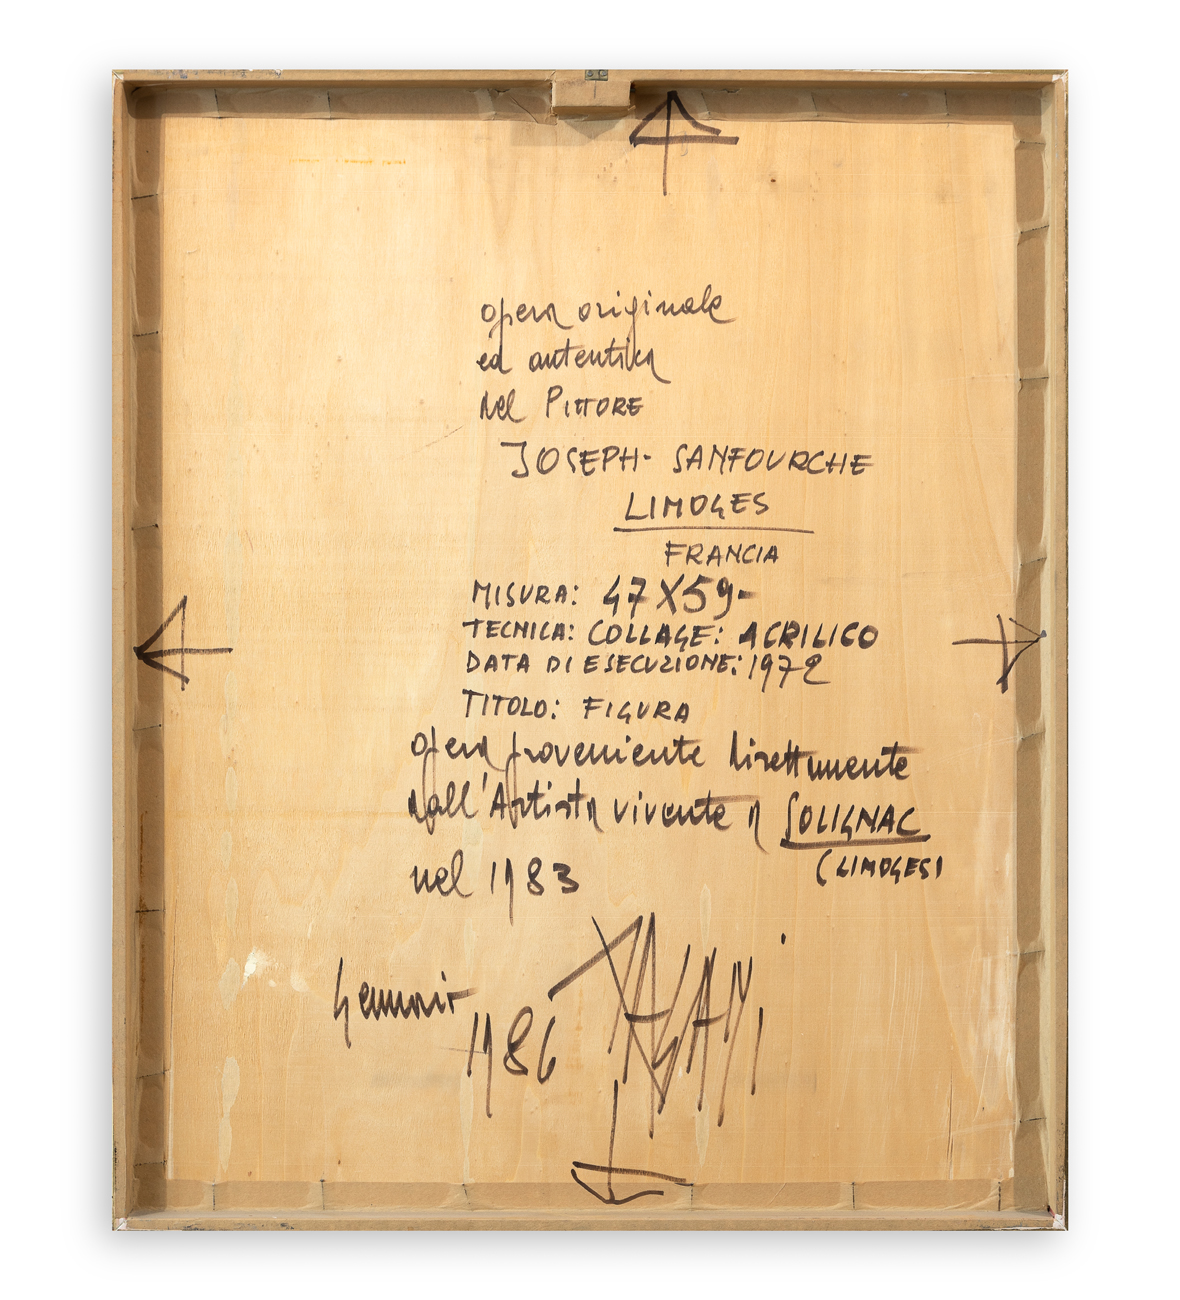 opera originale
ed autentica
del PITTORE
JOSEPH- SANFOURCHE
LIMOGES
FRANCIA
MISURA: 47X59-
TECNICA: COLLAGE: ACRILICO
DATA DI ESECUZIONE: 1972
TITOLO: FIGURA
opera proveniente direttamente
dall'Artista vivente a SOLIGNAC
(LIMOGES)
nel 1983
Gennaio
1986